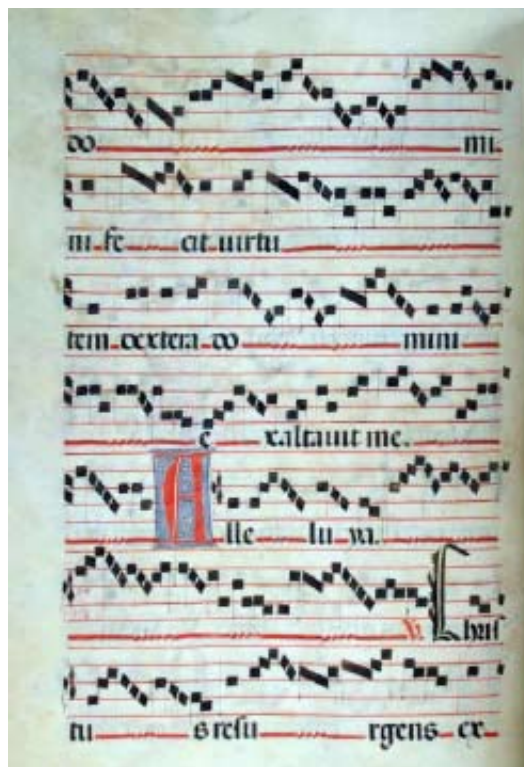 do mi
ni fe cit uirtu
tem dextera do mini
e xaltauit me.
Alle lu ya.
℣. Chris
tu s resu rgens ex